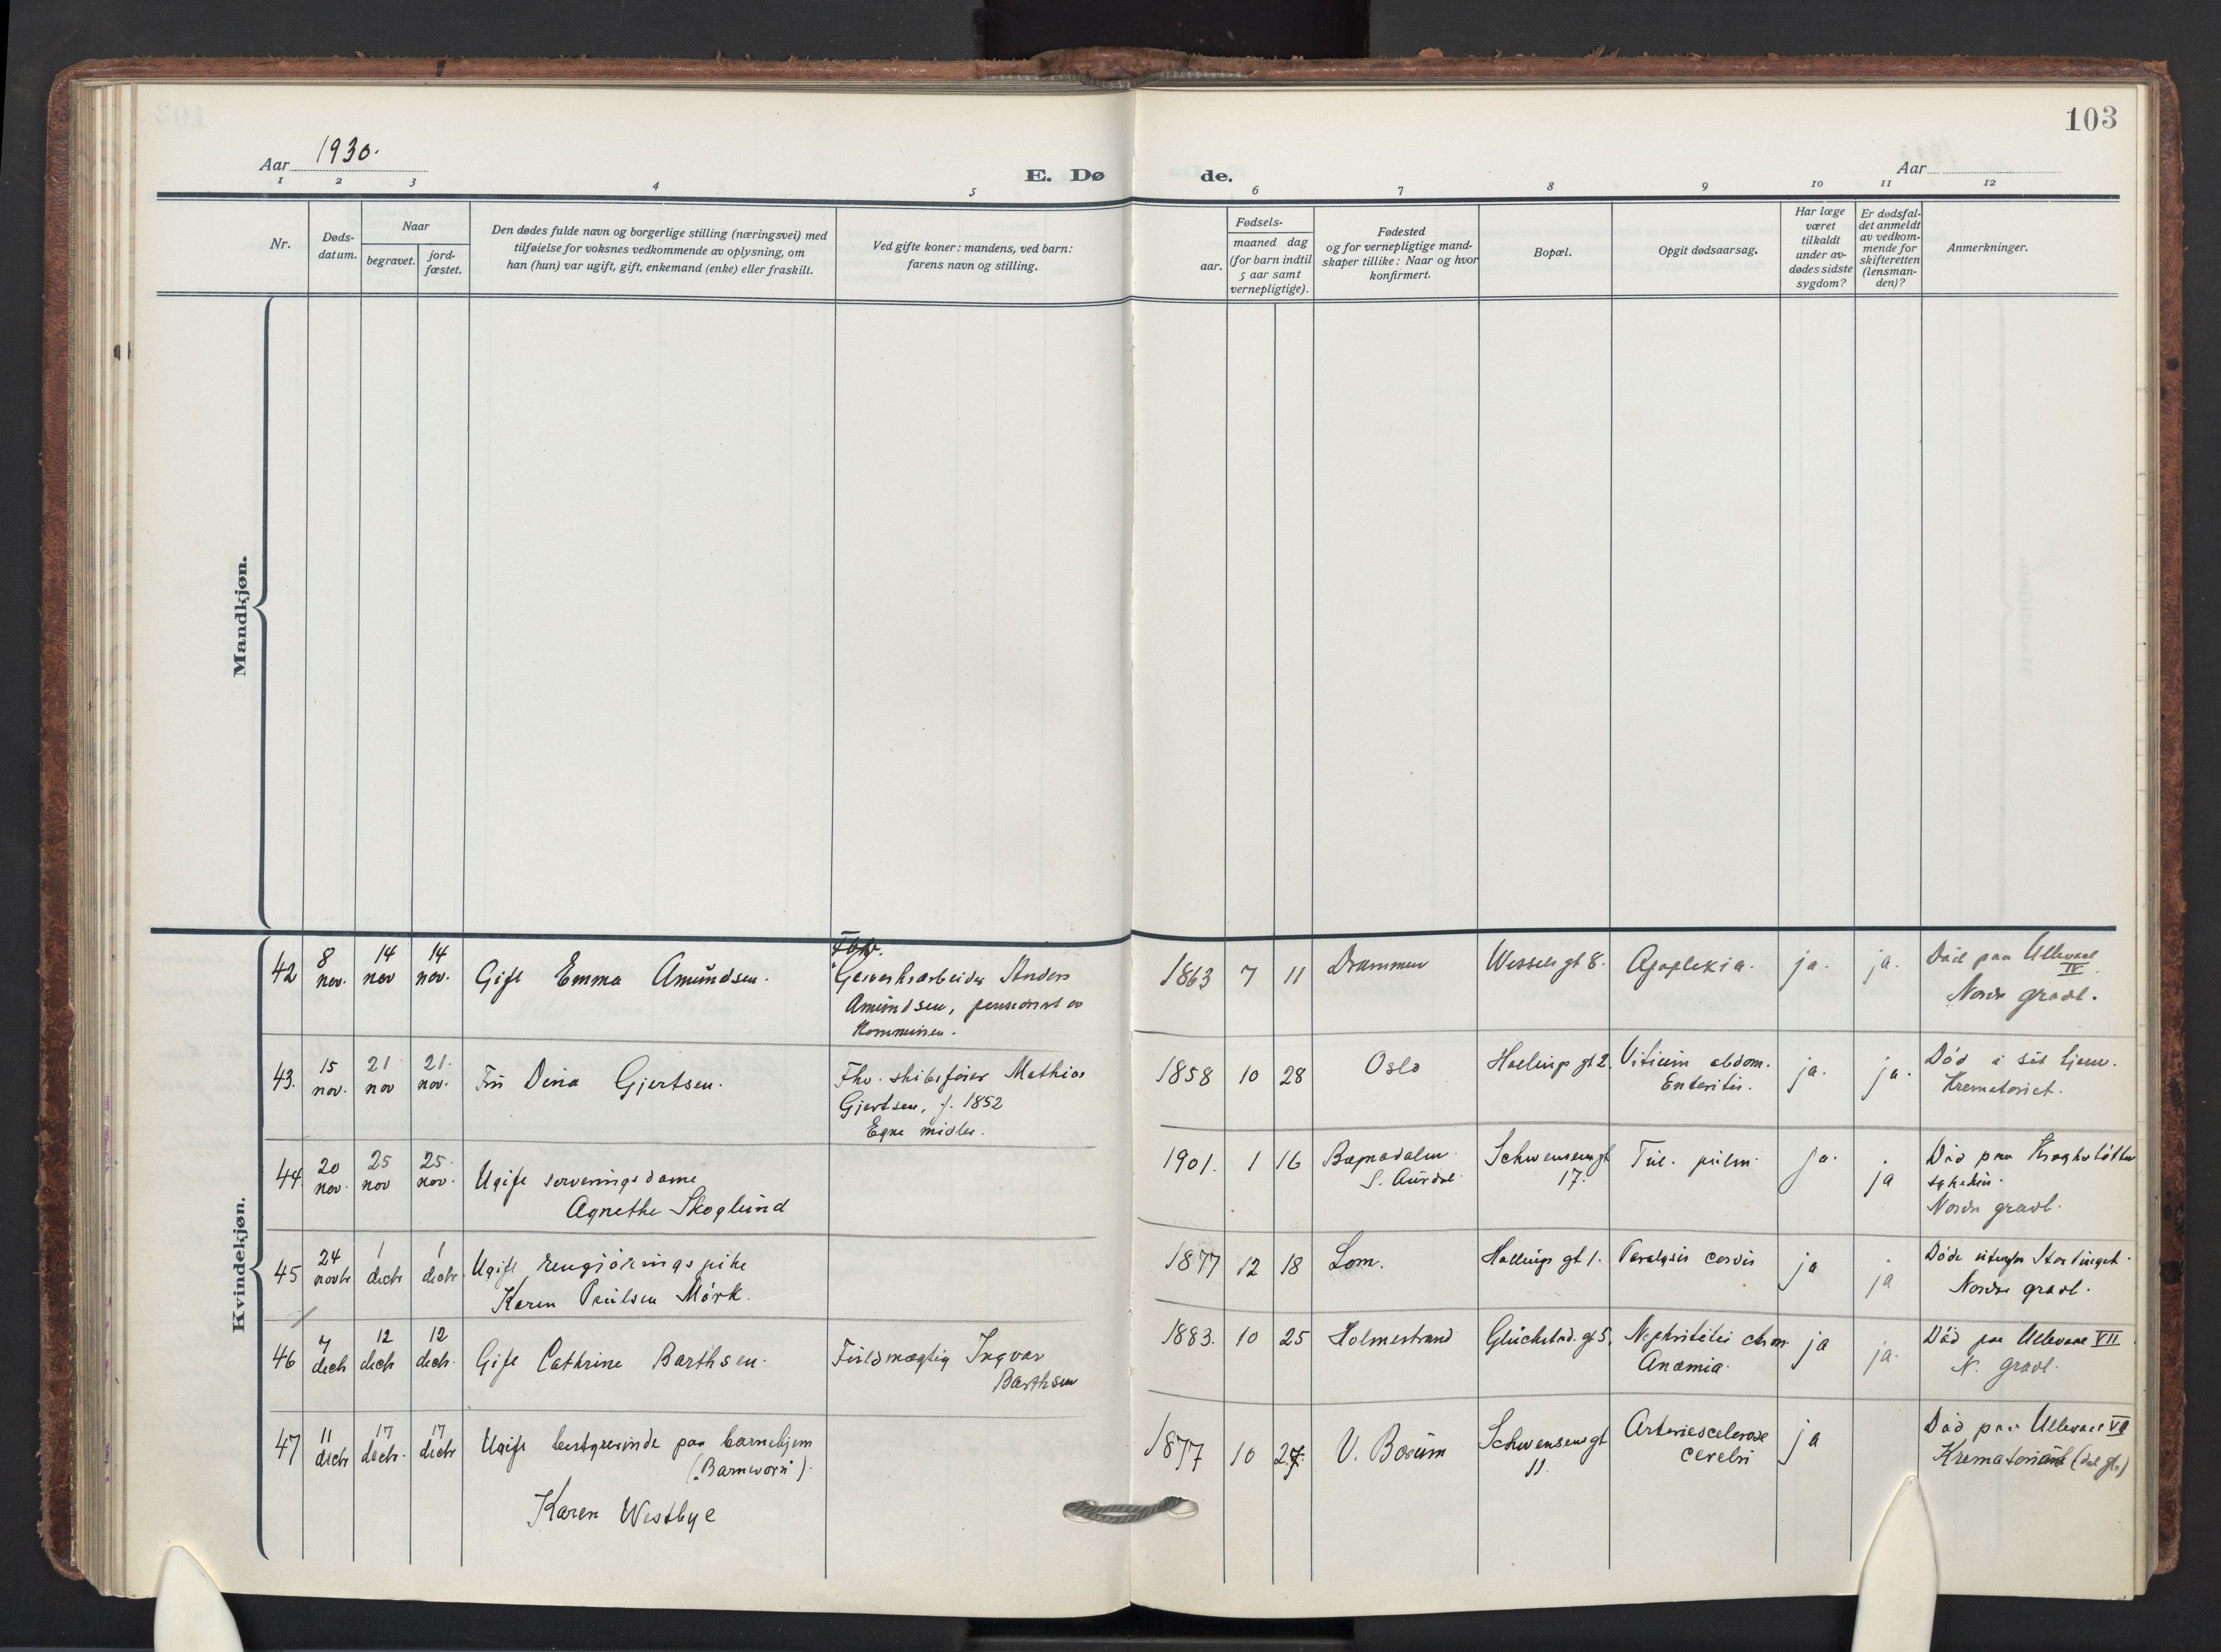 103
Aar 1930.
E. Dø de.
Aar
1 2 3 4 5 6 7 8 9 10 11 12
Nr.
Døds-
datum.
Naar
begravet.
jord-
fæstet.
Den dødes fulde navn og borgerlige stilling (næringsvei) med
tilføielse for voksnes vedkommende av oplysning, om
han (hun) var ugift, gift, enkemand (enke) eller fraskilt.
Ved gifte koner: mandens, ved barn:
farens navn og stilling.
Fødsels-
aar.
maaned dag
(for barn indtil
5 aar samt
vernepligtige).
Fødested
og for vernepligtige mand-
skaper tillike: Naar og hvor
konfirmert.
Bopæl.
Opgit dødsaarsag.
Har læge
været
tilkaldt
under av-
dødes sidste
sygdom?
Er dødsfal-
det anmeldt
av vedkom-
mende for
skifteretten
(lensman-
den)?
Anmerkninger.
Mandkjøn.
Kvindekjøn.
42
8
nov.
14
nov
14
nov.
Gift Emma Amundsen.
Anders
Amundsen, pensionert av
Kommunen.
1863 7 11
Drammen
Wessels gt 8.
Apoplexia.
ja.
ja.
Død paa Ullevaal
IV
Nordre gravl.
43.
15
nov.
21
nov
21.
nov.
Fru Dina Gjertsen.
Fhv. skibsfører Mathias
Gjertsen, f. 1852
Egne midler.
1858 10 28
Oslo
gt 2.
Vitium abdom.
Enteritis.
ja.
ja.
Død i sit hjem.
Krematoriet.
44
20
nov.
25
nov
25.
nov.
Ugift serveringsdame
Agnethe Skoglund
1901. 1 16
S. Aurdal
Schwensens gt
17.
Tub. pulm.
ja.
ja
Død paa
Nordre gravl.
45
24
novbr
1
decbr
1
decbr.
Ugift rengjørings pike
Karen Paulsen Mørk.
1877 12 18
Lom.
gt 1.
Paralysis cordis
ja
ja
Døde utenfor Stortinget.
Nordre gravl.
46
7
decbr
12
decbr
12
decbr.
Gift Cathrine Barthsen.
Fuldmægtig Ingvar
Barthsen
1883. 10 25
Holmestrand
Glückstad. gt 5.
chron.
Anæmia.
ja
ja.
Død paa Ullevaal VII.
N. gravl.
47
11
decbr
17
decbr.
17
decbr
Ugift bestyrerinde paa barnehjem
("Barnevorn").
Karen Westbye
1877 10 27.
V. Bærum
Schwensens gt
11.
Arteriesclerose
cerebri
ja
Død paa Ullevaal VII